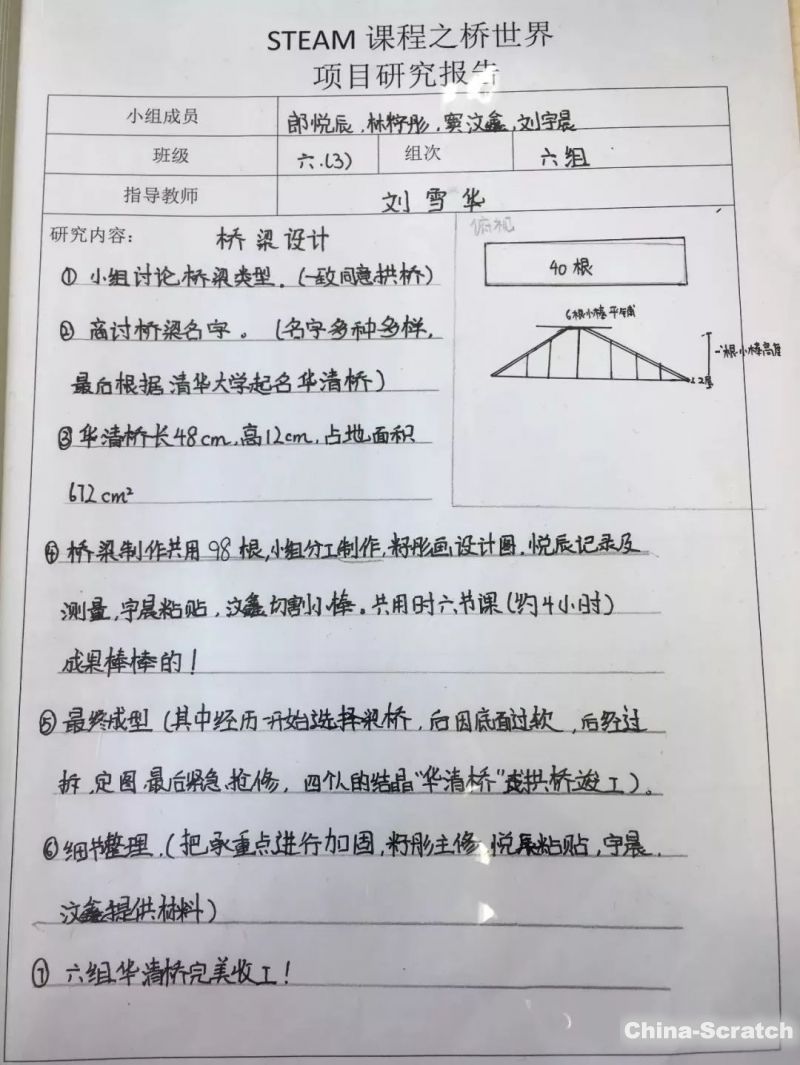 STEAM 课程之桥世界
项目研究报告
小组成员 郎悦辰,林籽彤,窦汶鑫,刘宇晨
班级 六.(3) 组次 六组
指导教师 刘雪华
研究内容: 桥梁设计
① 小组讨论桥梁类型。(一致同意拱桥)
② 商讨桥梁名字。(名字多种多样,
最后根据清华大学起名华清桥)
③ 华清桥长48cm,高12cm,占地面积
672cm²
俯视
40根
6根小棒平铺
一根小棒高度
④ 桥梁制作共用98根,小组分工制作,籽彤画设计图,悦辰记录及
测量,宇晨粘贴,汶鑫切割小棒。共用时六节课(约4小时)
成果棒棒的!
⑤ 最终成型(其中经历一开始选择梁桥,后因底面过软,后经过
拆,定图,最后紧急抢修,四个人的结晶"华清桥"拱桥竣工)。
⑥ 细节整理,(把承重点进行加固,籽彤主修,悦辰粘贴,宇晨,
汶鑫提供材料)
⑦ 六组华清桥完美收工!
China-Scratch